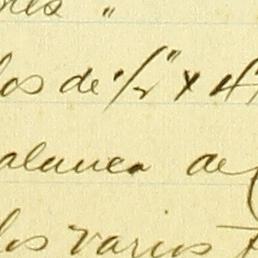 los de 1/2" x 4
alanca de
los varios